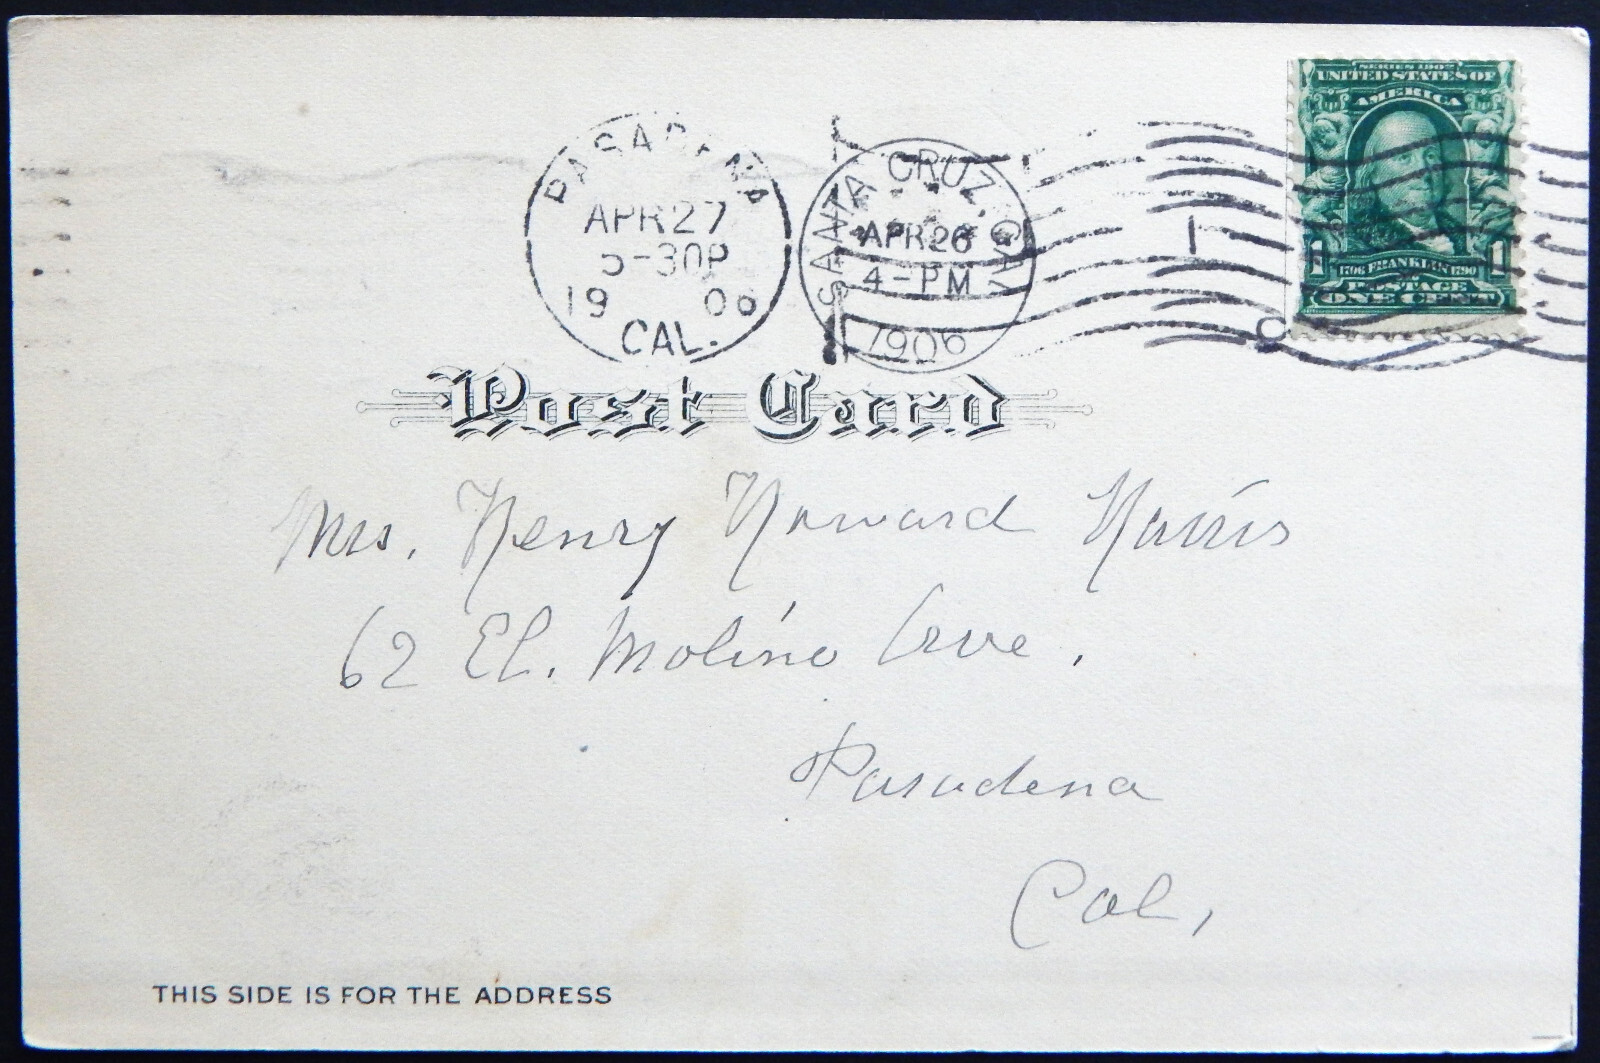 SERIES 1902
UNITED STATES OF
AMERICA
1 1706 FRANKLIN 1790 1
POSTAGE
ONE CENT
PASADENA
APR 27
5-30P
19 06
CAL.
SANTA CRUZ, CAL
APR 26
4-PM
1906
1
Post Card
Mrs. Henry Howard
62 El. Molino Ave.
Pasadena
Cal,
THIS SIDE IS FOR THE ADDRESS